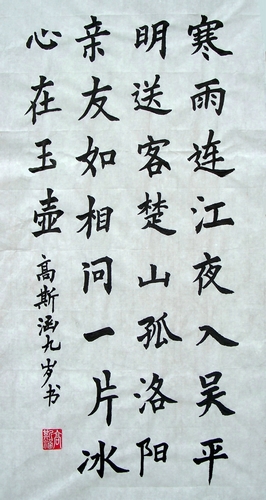 寒雨连江夜入吴平
明送客楚山孤洛阳
亲友如相问一片冰
心在玉壶
高斯涵九岁书